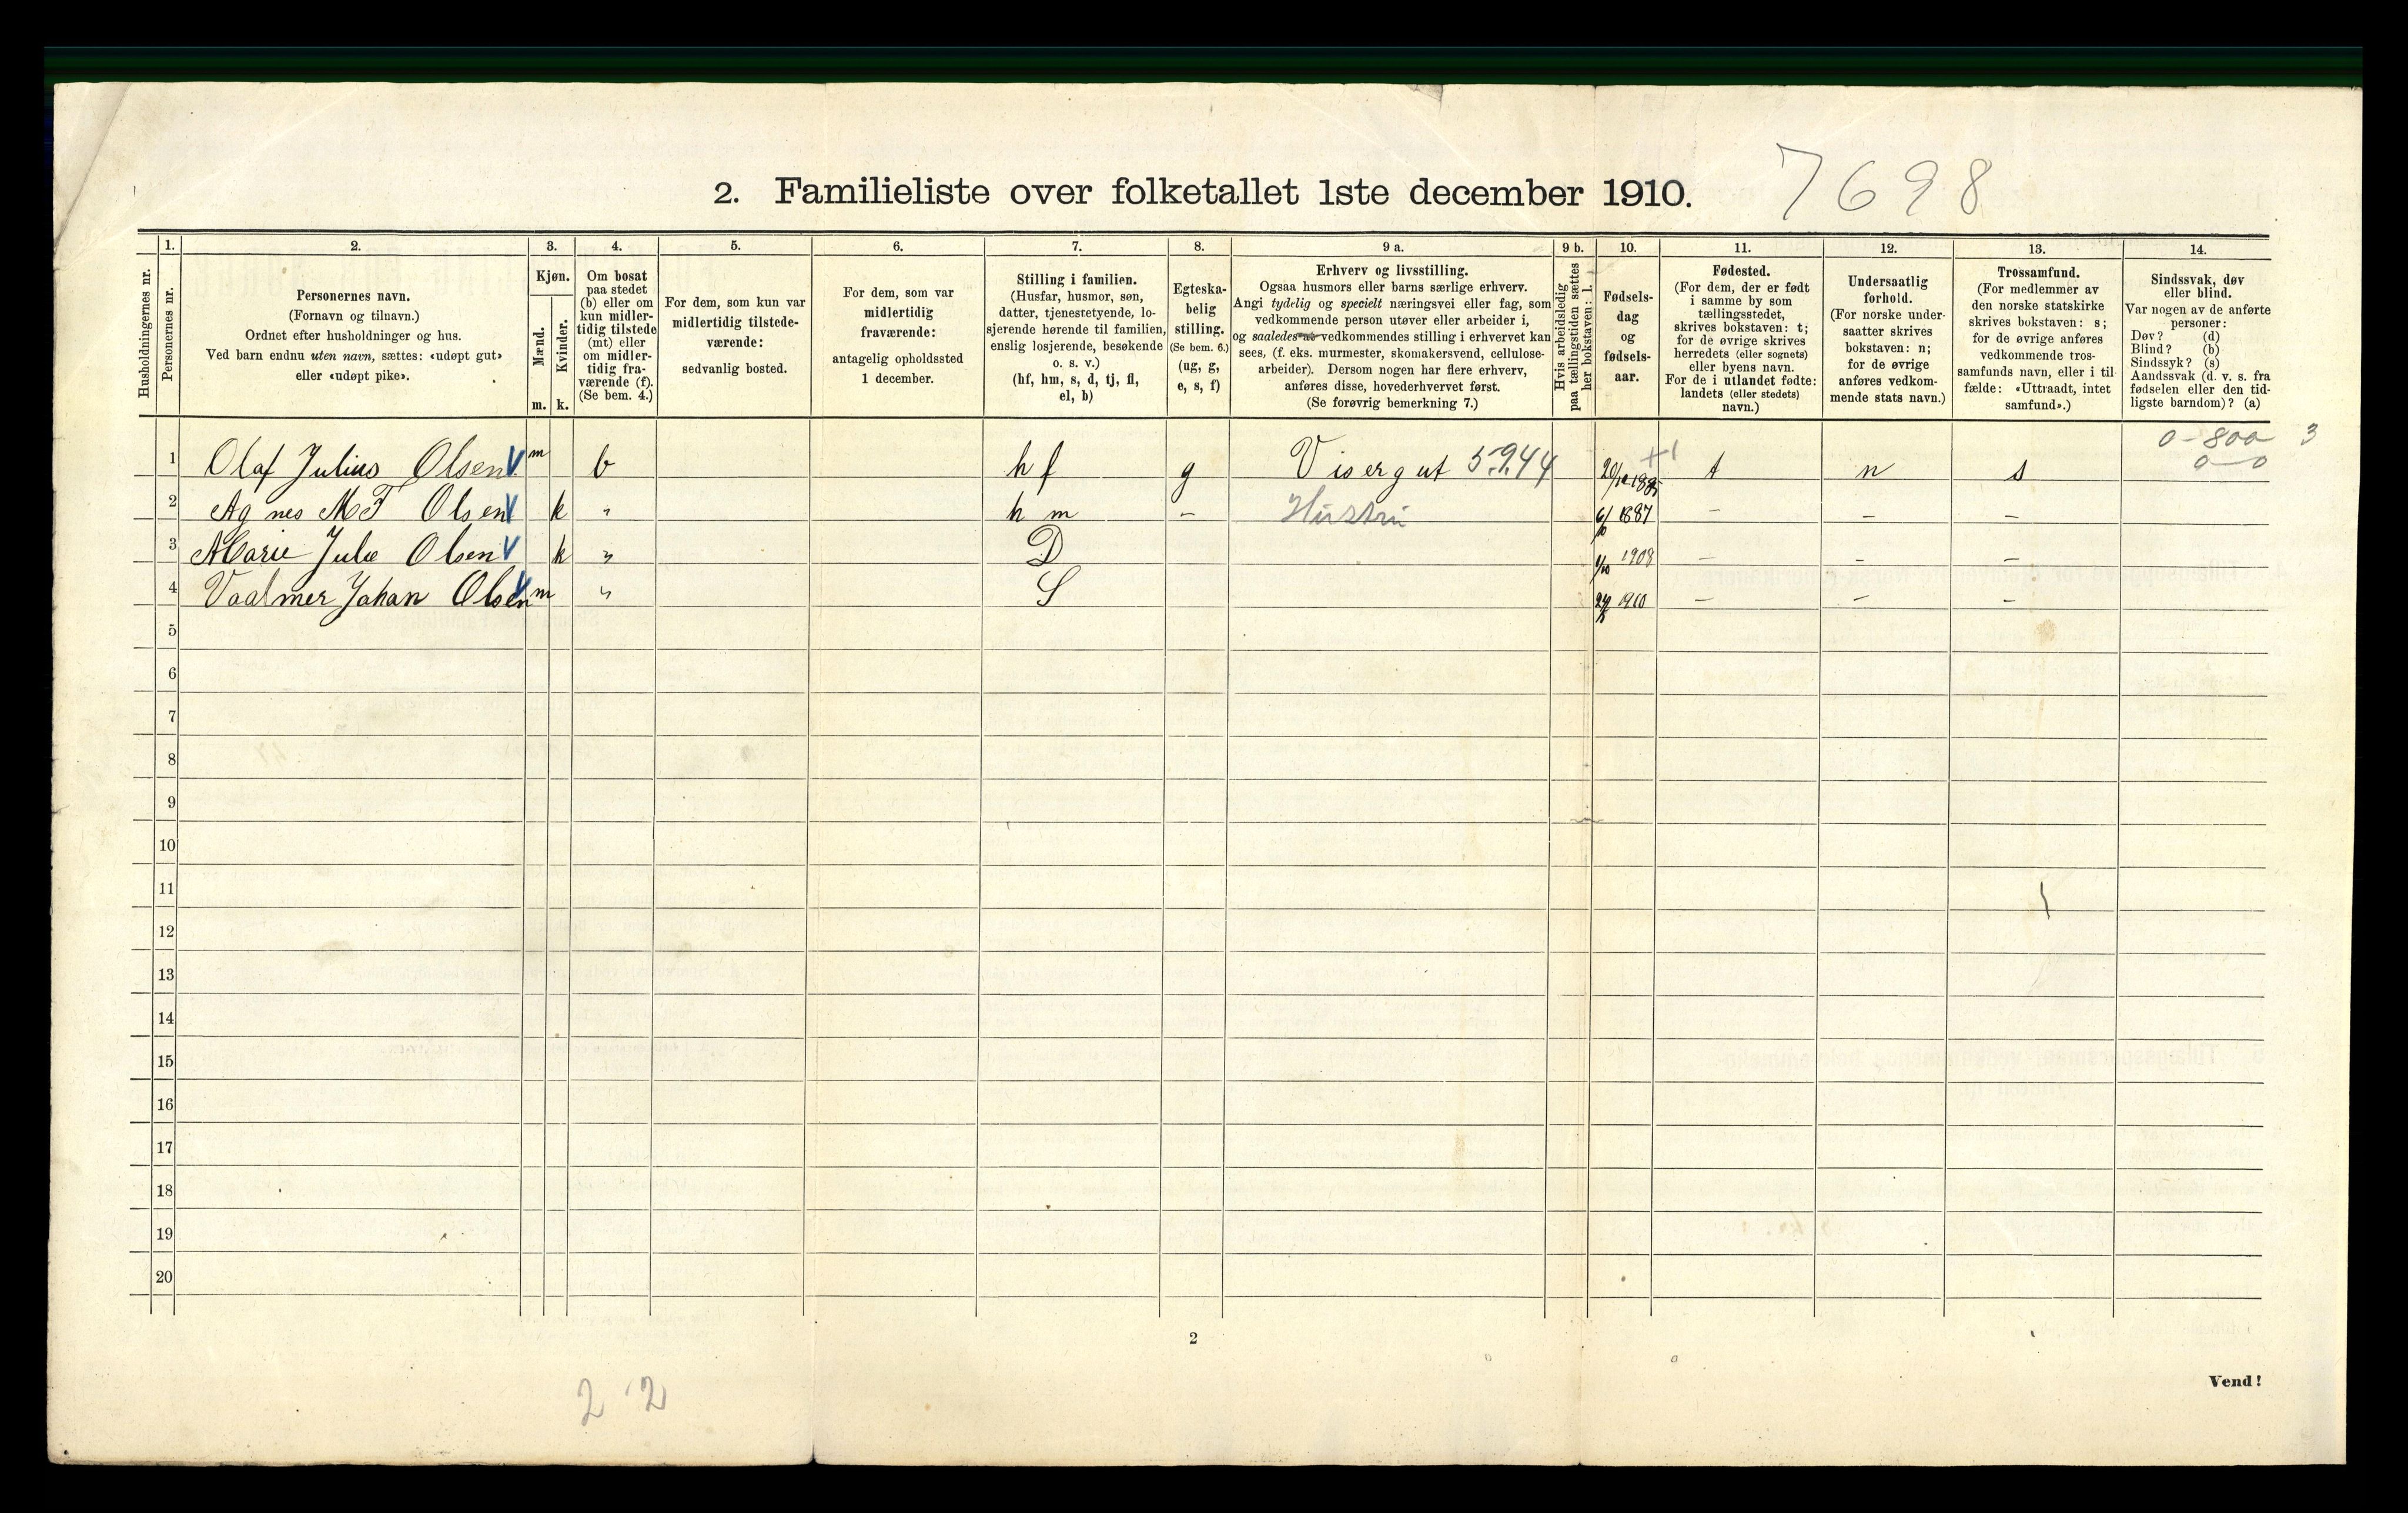 2. Familieliste over folketallet 1ste december 1910. 7698
Husholdningernes nr.
1. Personernes nr.
2. Personernes navn.
(Fornavn og tilnavn.)
Ordnet efter husholdninger og hus.
Ved barn endnu uten navn, sættes: «udøpt gut»
eller «udøpt pike».
3. Kjøn.
Mænd. m.
Kvinder. k.
4. Om bosat
paa stedet
(b) eller om
kun midler-
tidig tilstede
(mt) eller
om midler-
tidig fra-
værende (f).
(Se bem. 4.)
5. For dem, som kun var
midlertidig tilstede-
værende:
sedvanlig bosted.
6. For dem, som var
midlertidig
fraværende:
antagelig opholdssted
1 december.
7. Stilling i familien.
(Husfar, husmor, søn,
datter, tjenestetyende, lo-
sjerende hørende til familien,
enslig losjerende, besøkende
o. s. v.)
(hf, hm, s, d, tj, fl,
el, b)
8. Egteska-
belig
stilling.
(Se bem. 6.)
(ug, g,
e, s, f)
9 a. Erhverv og livsstilling.
Ogsaa husmors eller barns særlige erhverv.
Angi tydelig og specielt næringsvei eller fag, som
vedkommende person utøver eller arbeider i,
og saaledes vedkommendes stilling i erhvervet kan
sees, (f. eks. murmester, skomakersvend, cellulose-
arbeider). Dersom nogen har flere erhverv,
anføres disse, hovederhvervet først.
(Se forøvrig bemerkning 7.)
9 b. Hvis arbeidsledig
paa tællingstiden sættes
her bokstaven: l.
10. Fødsels-
dag
og
fødsels-
aar.
11. Fødested.
(For dem, der er født
i samme by som
tællingsstedet,
skrives bokstaven: t;
for de øvrige skrives
herredets (eller sognets)
eller byens navn.
For de i utlandet fødte:
landets (eller stedets)
navn.)
12. Undersaatlig
forhold.
(For norske under-
saatter skrives
bokstaven: n;
for de øvrige
anføres vedkom-
mende stats navn.)
13. Trossamfund.
(For medlemmer av
den norske statskirke
skrives bokstaven: s;
for de øvrige anføres
vedkommende tros-
samfunds navn, eller i til-
fælde: «Uttraadt, intet
samfund».)
14. Sindssvak, døv
eller blind.
Var nogen av de anførte
personer:
Døv? (d)
Blind? (b)
Sindssyk? (s)
Aandssvak (d. v. s. fra
fødselen eller den tid-
ligste barndom)? (a)
0-800 3
0-0
1 Olaf Julius Olsen m b hf g Visergut 5.9.44 t n s
2 Agnes M F Olsen k " hm - Hustru 1887 - - -
3 Marie Julie Olsen k " D 1/10 1908 - - -
4 Vaalmer Johan Olsen m " S 1910 - - -
5
6
7
8
9
10
11
12
13
14
15
16
17
18
19
20
2
Vend!
2 2